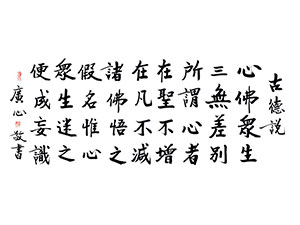 古德説
心佛眾生
三無差別
所謂心者
在聖不增
在凡不減
諸佛悟之
假名惟心
眾生迷之
便成妄識
廣心敬書